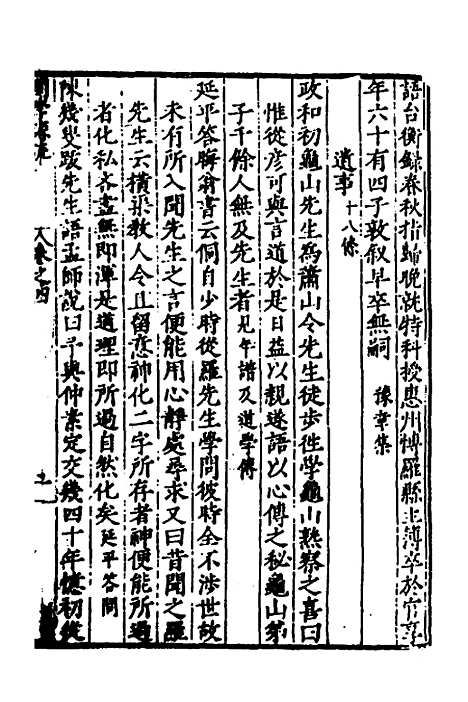 語台衡錄春秋指歸晚就特科授惠州愽羅縣主簿卒於官享
年六十有四子敦叙早卒無嗣 豫章集
遺事 十八條
政和初龜山先生為蕭山令先生徒步徃學龜山熟察之喜曰
惟從彦可與言道於是日益以親遂語以心傳之秘龜山弟
子千餘人無及先生者 見年譜及道學傳
延平答晦翁書云侗自少時從羅先生學問彼時全不涉世故
未有所入聞先生之言便能用心靜處尋求又曰昔聞之羅
先生云橫渠教人令且留意神化二字所存者神便能所過
者化私吝盡無即渾是道理即所過自然化矣 延平答問
陳幾叟跋先生語孟師說曰予與仲素定交幾四十年憶初從
卷之四
十一